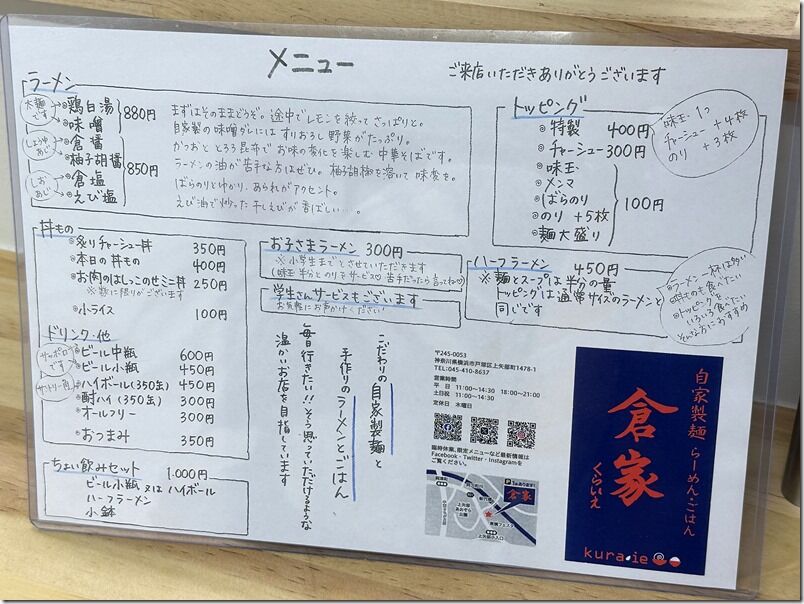 メニュー
ご来店いただきありがとうございます
ラーメン
太麺です
鶏白湯
味噌
880円
しょうゆあじ
倉醤
柚子胡醤
850円
しおあじ
倉塩
えび塩
まずはそのままどうぞ。途中でレモンを絞ってさっぱりと。
自家製の味噌ダレにはすりおろし野菜がたっぷり。
かつおととろろ昆布でお味の変化を楽しむ中華そばです。
ラーメンの油が苦手な方はぜひ。柚子胡椒を溶いて味変を。
ばらのりとゆかり、あられがアクセント。
えび油で炒った干しえびが香ばしい…。
トッピング
特製 400円
チャーシュー 300円
味玉
メンマ
ばらのり
のり +5枚
麺大盛り
100円
味玉 1つ
チャーシュー +4枚
のり +3枚
丼もの
炙りチャーシュー丼 350円
本日の丼もの 400円
お肉のはしっこのせミニ丼 250円
※数に限りがございます
小ライス 100円
ドリンク・他
サッポロです
ビール中瓶 600円
ビール小瓶 450円
サントリー角
ハイボール(350缶) 450円
酎ハイ(350缶) 300円
オールフリー 300円
おつまみ 350円
お子さまラーメン 300円
※小学生までとさせていただきます
(味玉半分とのりをサービス♡ 苦手だったら言ってね♡)
学生さんサービスもございます
お気軽にお声がけください!
ハーフラーメン 450円
※麺とスープは半分の量
トッピングは通常サイズのラーメンと
同じです
ラーメン一杯は多い
トッピングを
いろいろ食べたい
そんな方におすすめ
こだわりの自家製麺と
手作りのラーメンとごはん
毎日行きたい!!そう思っていただけるような
温かいお店を目指しています
ちょい飲みセット 1.000円
ビール小瓶 又は ハイボール
ハーフラーメン
小鉢
〒245-0053
神奈川県横浜市戸塚区上矢部町1478-1
TEL:045-410-8637
営業時間
平日 11:00〜14:30 18:00〜21:00
土日祝 11:00〜14:30
定休日 木曜日
臨時休業、限定メニューなど最新情報は
Facebook・Twitter・Instagramを
ご覧ください。
倉家
自家製麺 らーめん・ごはん
倉家
くらいえ
kura.ie